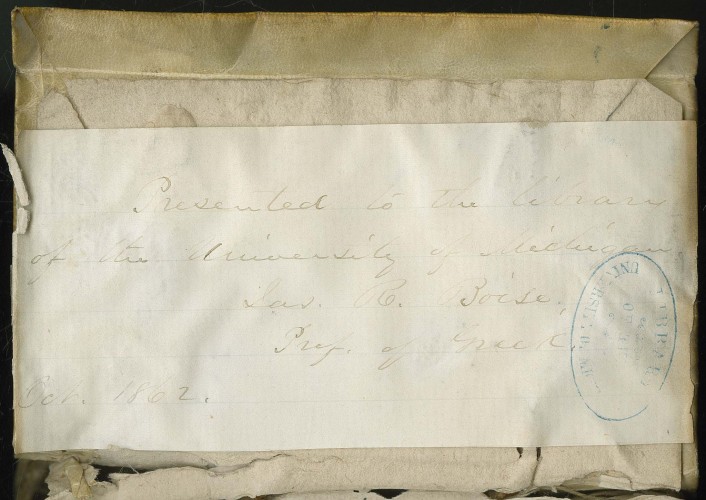 Presented to the library
of the University of Michigan,
Jas. R. Boise,
Prof. of Greek.
Oct. 1862.
UNIVERSITY OF
LIBRARY